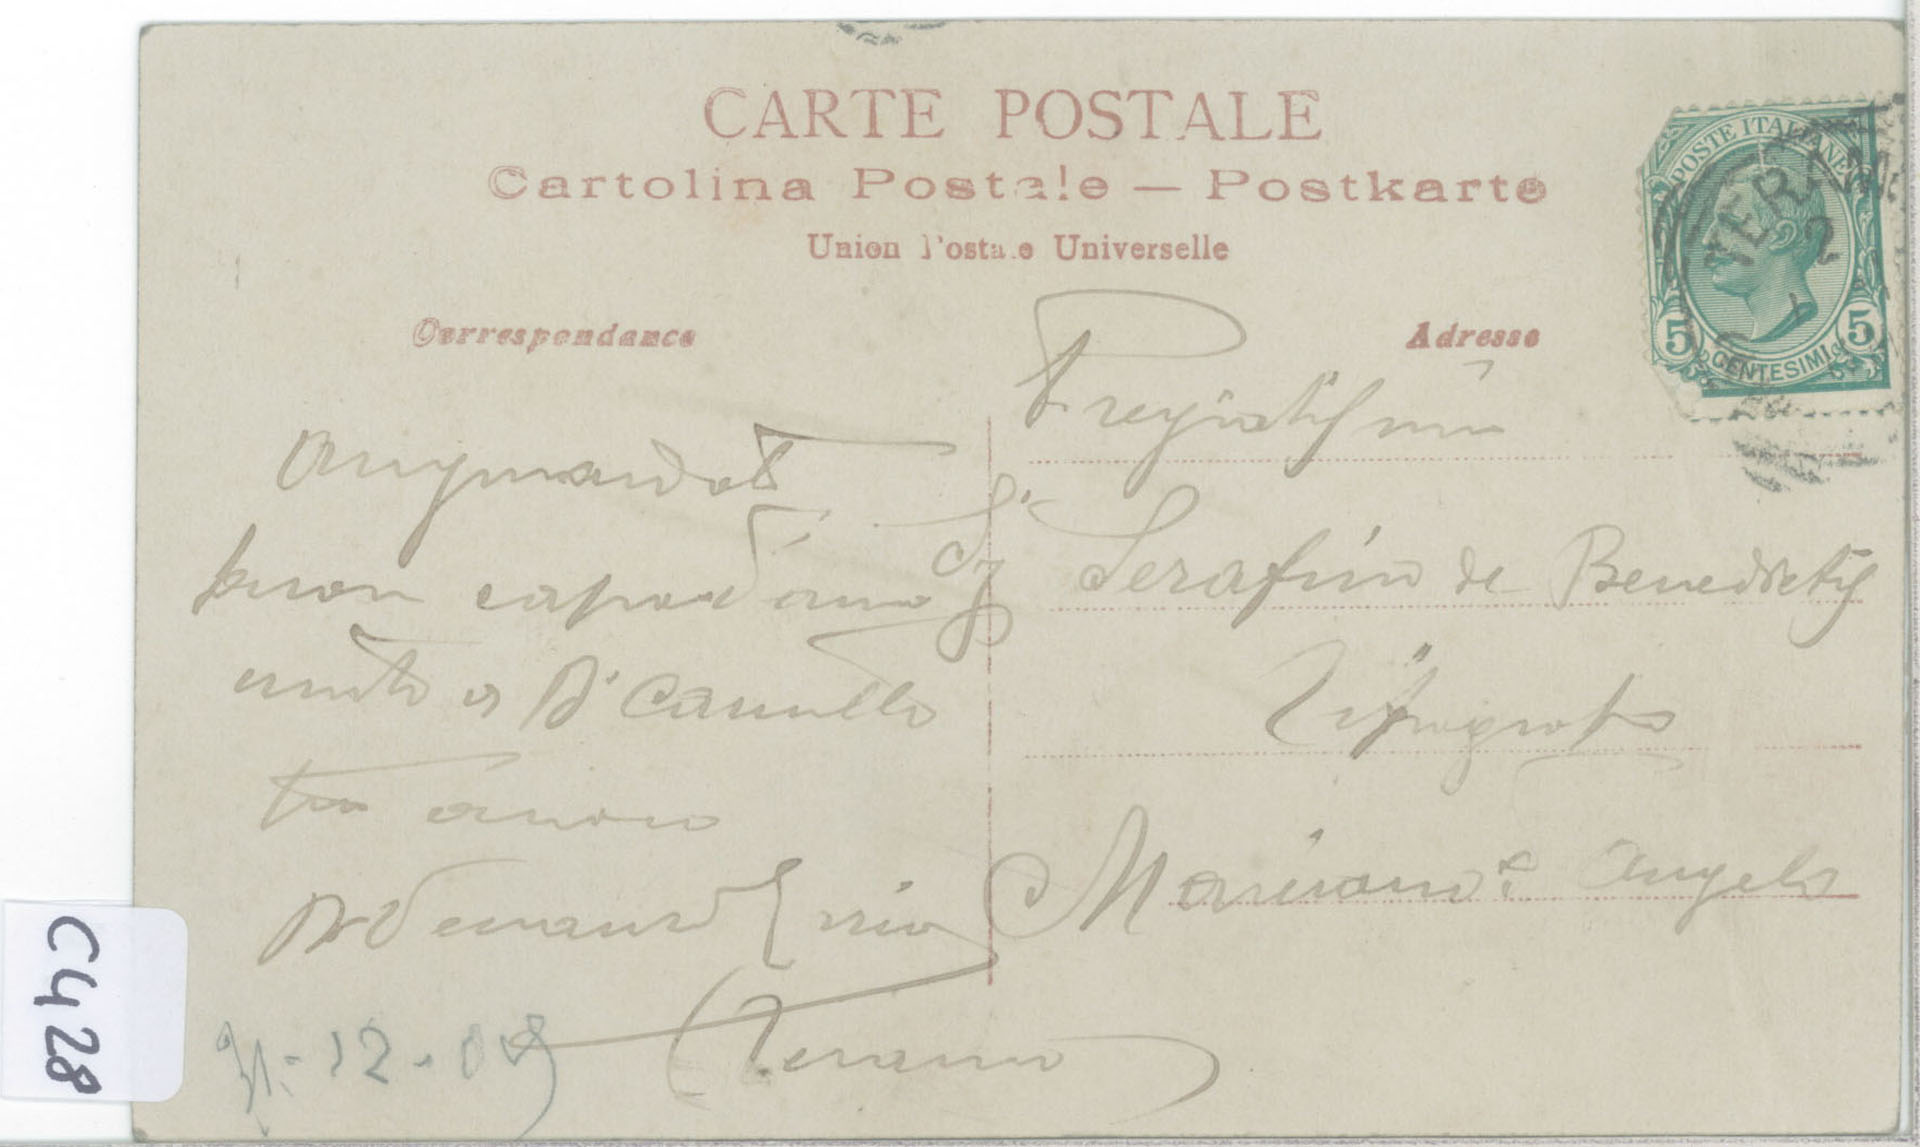 CARTE POSTALE
Cartolina Postale — Postkarte
Union Postale Universelle
Correspondance
Adresse
POSTE ITALIANE
5 CENTESIMI 5
TERAMO
2
Augurandoti
buon capo d'anno
unito a D. Camillo
tuo amico
Teramo
31-12-09
Pregiatissimo
Sig. Serafino de Benedictis
Tipografo
Mariano S. Angelo
C428